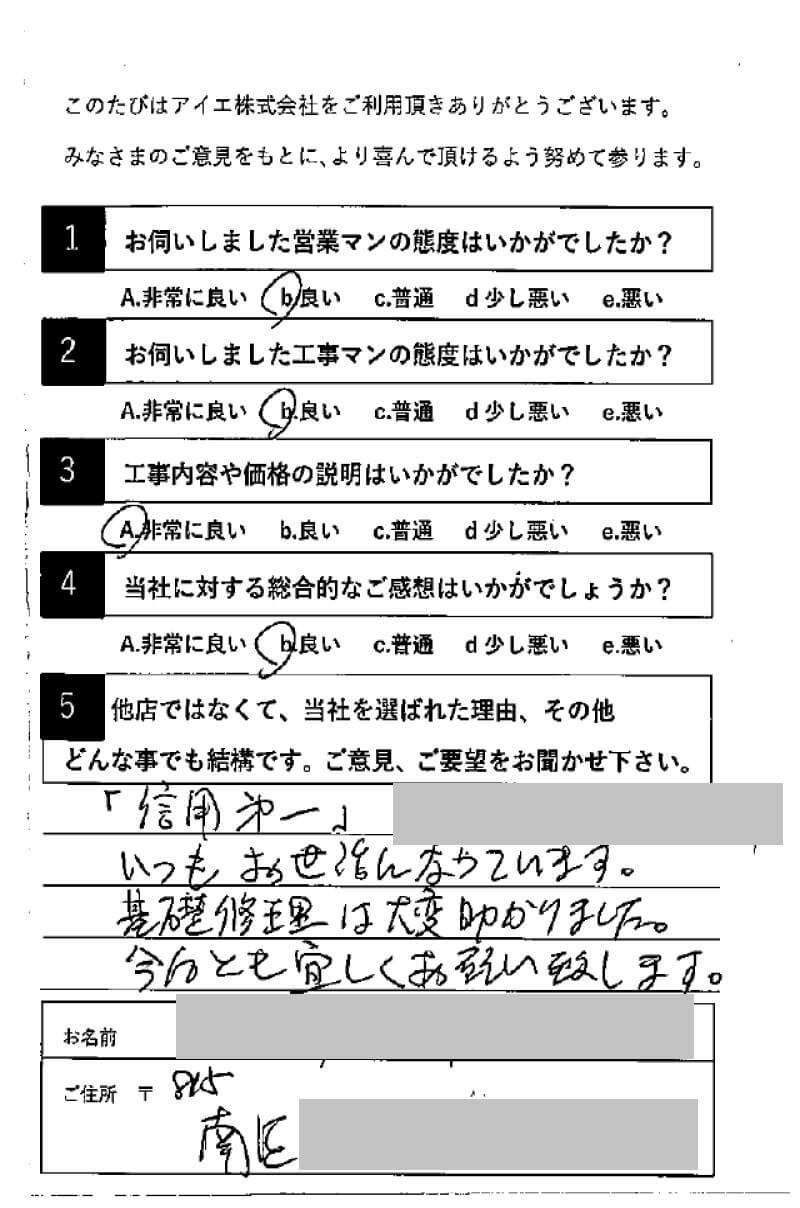 このたびはアイエ株式会社をご利用頂きありがとうございます。
みなさまのご意見をもとに、より喜んで頂けるよう努めて参ります。
1 お伺いしました営業マンの態度はいかがでしたか？
A.非常に良い b.良い c.普通 d 少し悪い e.悪い
2 お伺いしました工事マンの態度はいかがでしたか？
A.非常に良い b.良い c.普通 d 少し悪い e.悪い
3 工事内容や価格の説明はいかがでしたか？
A.非常に良い b.良い c.普通 d 少し悪い e.悪い
4 当社に対する総合的なご感想はいかがでしょうか？
A.非常に良い b.良い c.普通 d 少し悪い e.悪い
5 他店ではなくて、当社を選ばれた理由、その他
どんな事でも結構です。ご意見、ご要望をお聞かせ下さい。
「信用第一」
いつもお世話になっています。
基礎修理は大変助かりました。
今后とも宜しくお願い致します。
お名前
ご住所 〒 815
南区